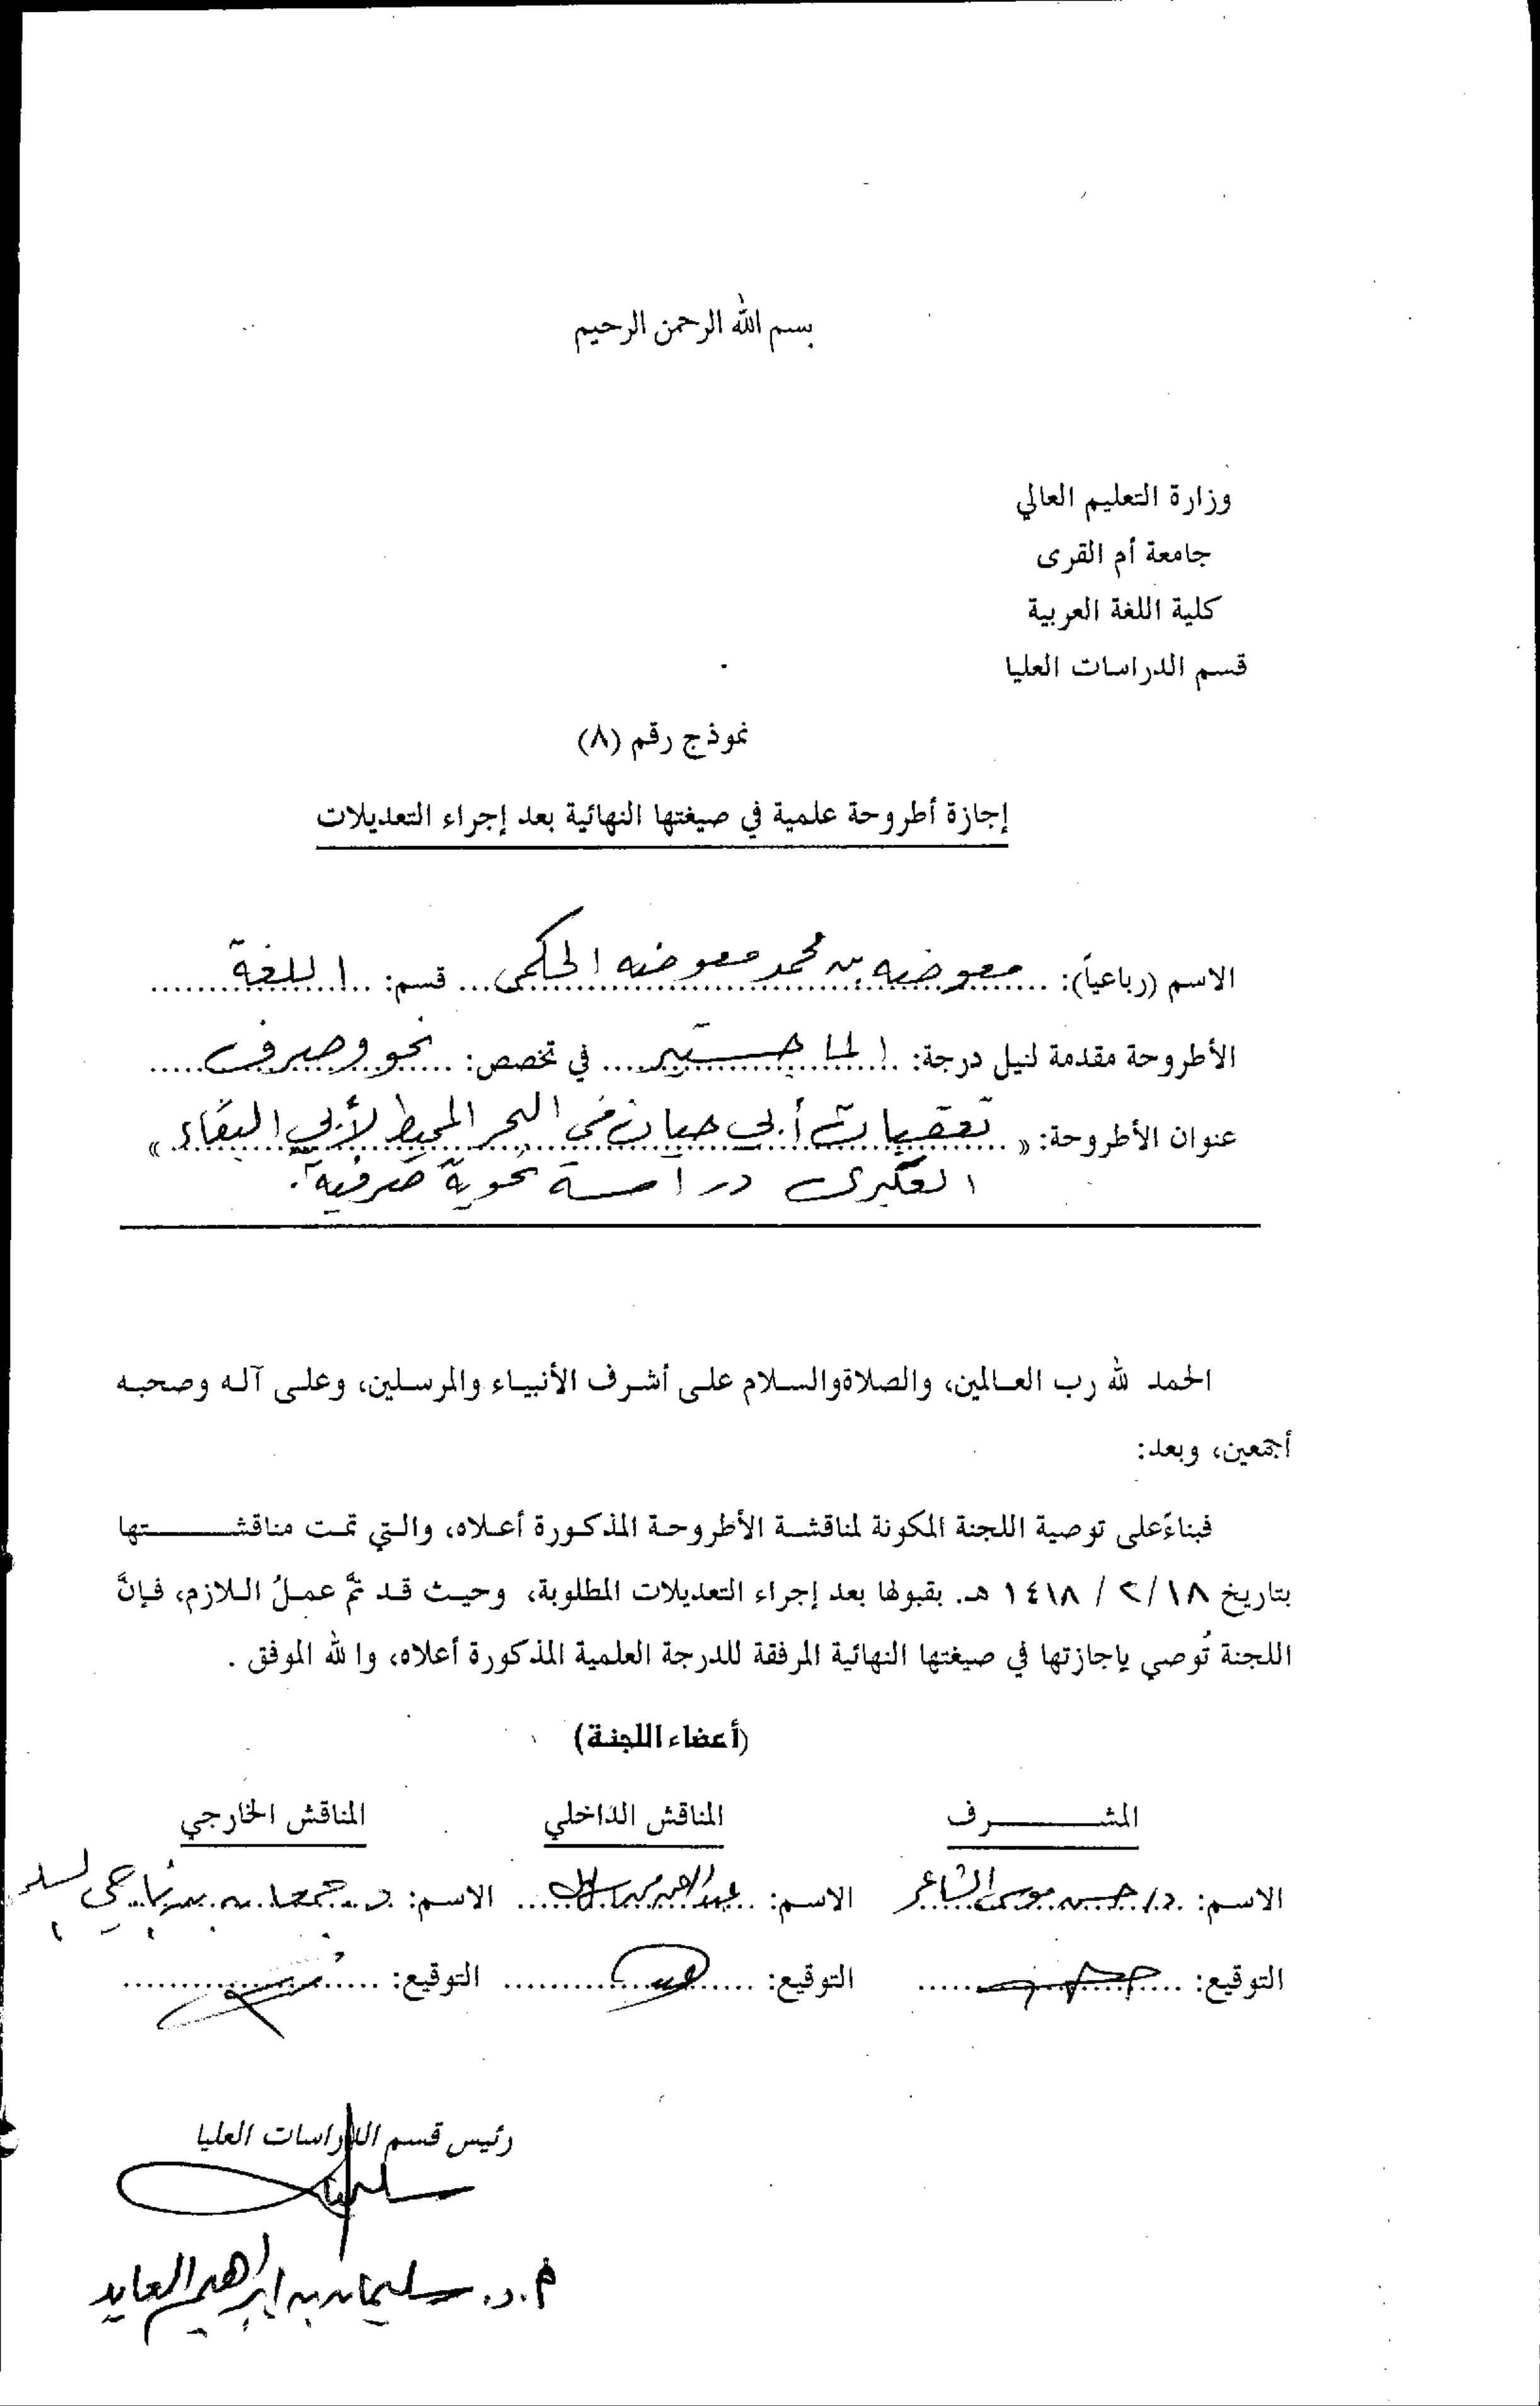 بسم الله الرحمن الرحيم
وزارة التعليم العالي
جامعة أم القرى
كلية اللغة العربية
قسم الدراسات العليا
نموذج رقم (٨)
إجازة أطروحة علمية في صيغتها النهائية بعد إجراء التعديلات
الاسم (رباعياً): معوض بن محمد معوض الحكمي قسم: اللغة
الأطروحة مقدمة لنيل درجة: الماجستير في تخصص: نحو وصرف
عنوان الأطروحة: « تعقبات أبي حيان في البحر المحيط لأبي البقاء »
العكبري دراسة نحوية صرفية.
الحمد لله رب العالمين، والصلاة والسلام على أشرف الأنبياء والمرسلين، وعلى آله وصحبه
أجمعين، وبعد:
فبناءً على توصية اللجنة المكونة لمناقشة الأطروحة المذكورة أعلاه، والتي تمت مناقشتها
بتاريخ ١٨/ ٢/ ١٤١٨ هـ. بقبولها بعد إجراء التعديلات المطلوبة، وحيث قد تمَّ عملُ اللازم، فإنَّ
اللجنة تُوصي بإجازتها في صيغتها النهائية المرفقة للدرجة العلمية المذكورة أعلاه، والله الموفق .
(أعضاء اللجنة)
المشرف المناقش الداخلي المناقش الخارجي
الاسم: د/ حسن موسى الشاعر الاسم: الاسم: د.
التوقيع: التوقيع: التوقيع:
رئيس قسم الدراسات العليا
سليمان
م.د. سليمان بن إبراهيم العايد